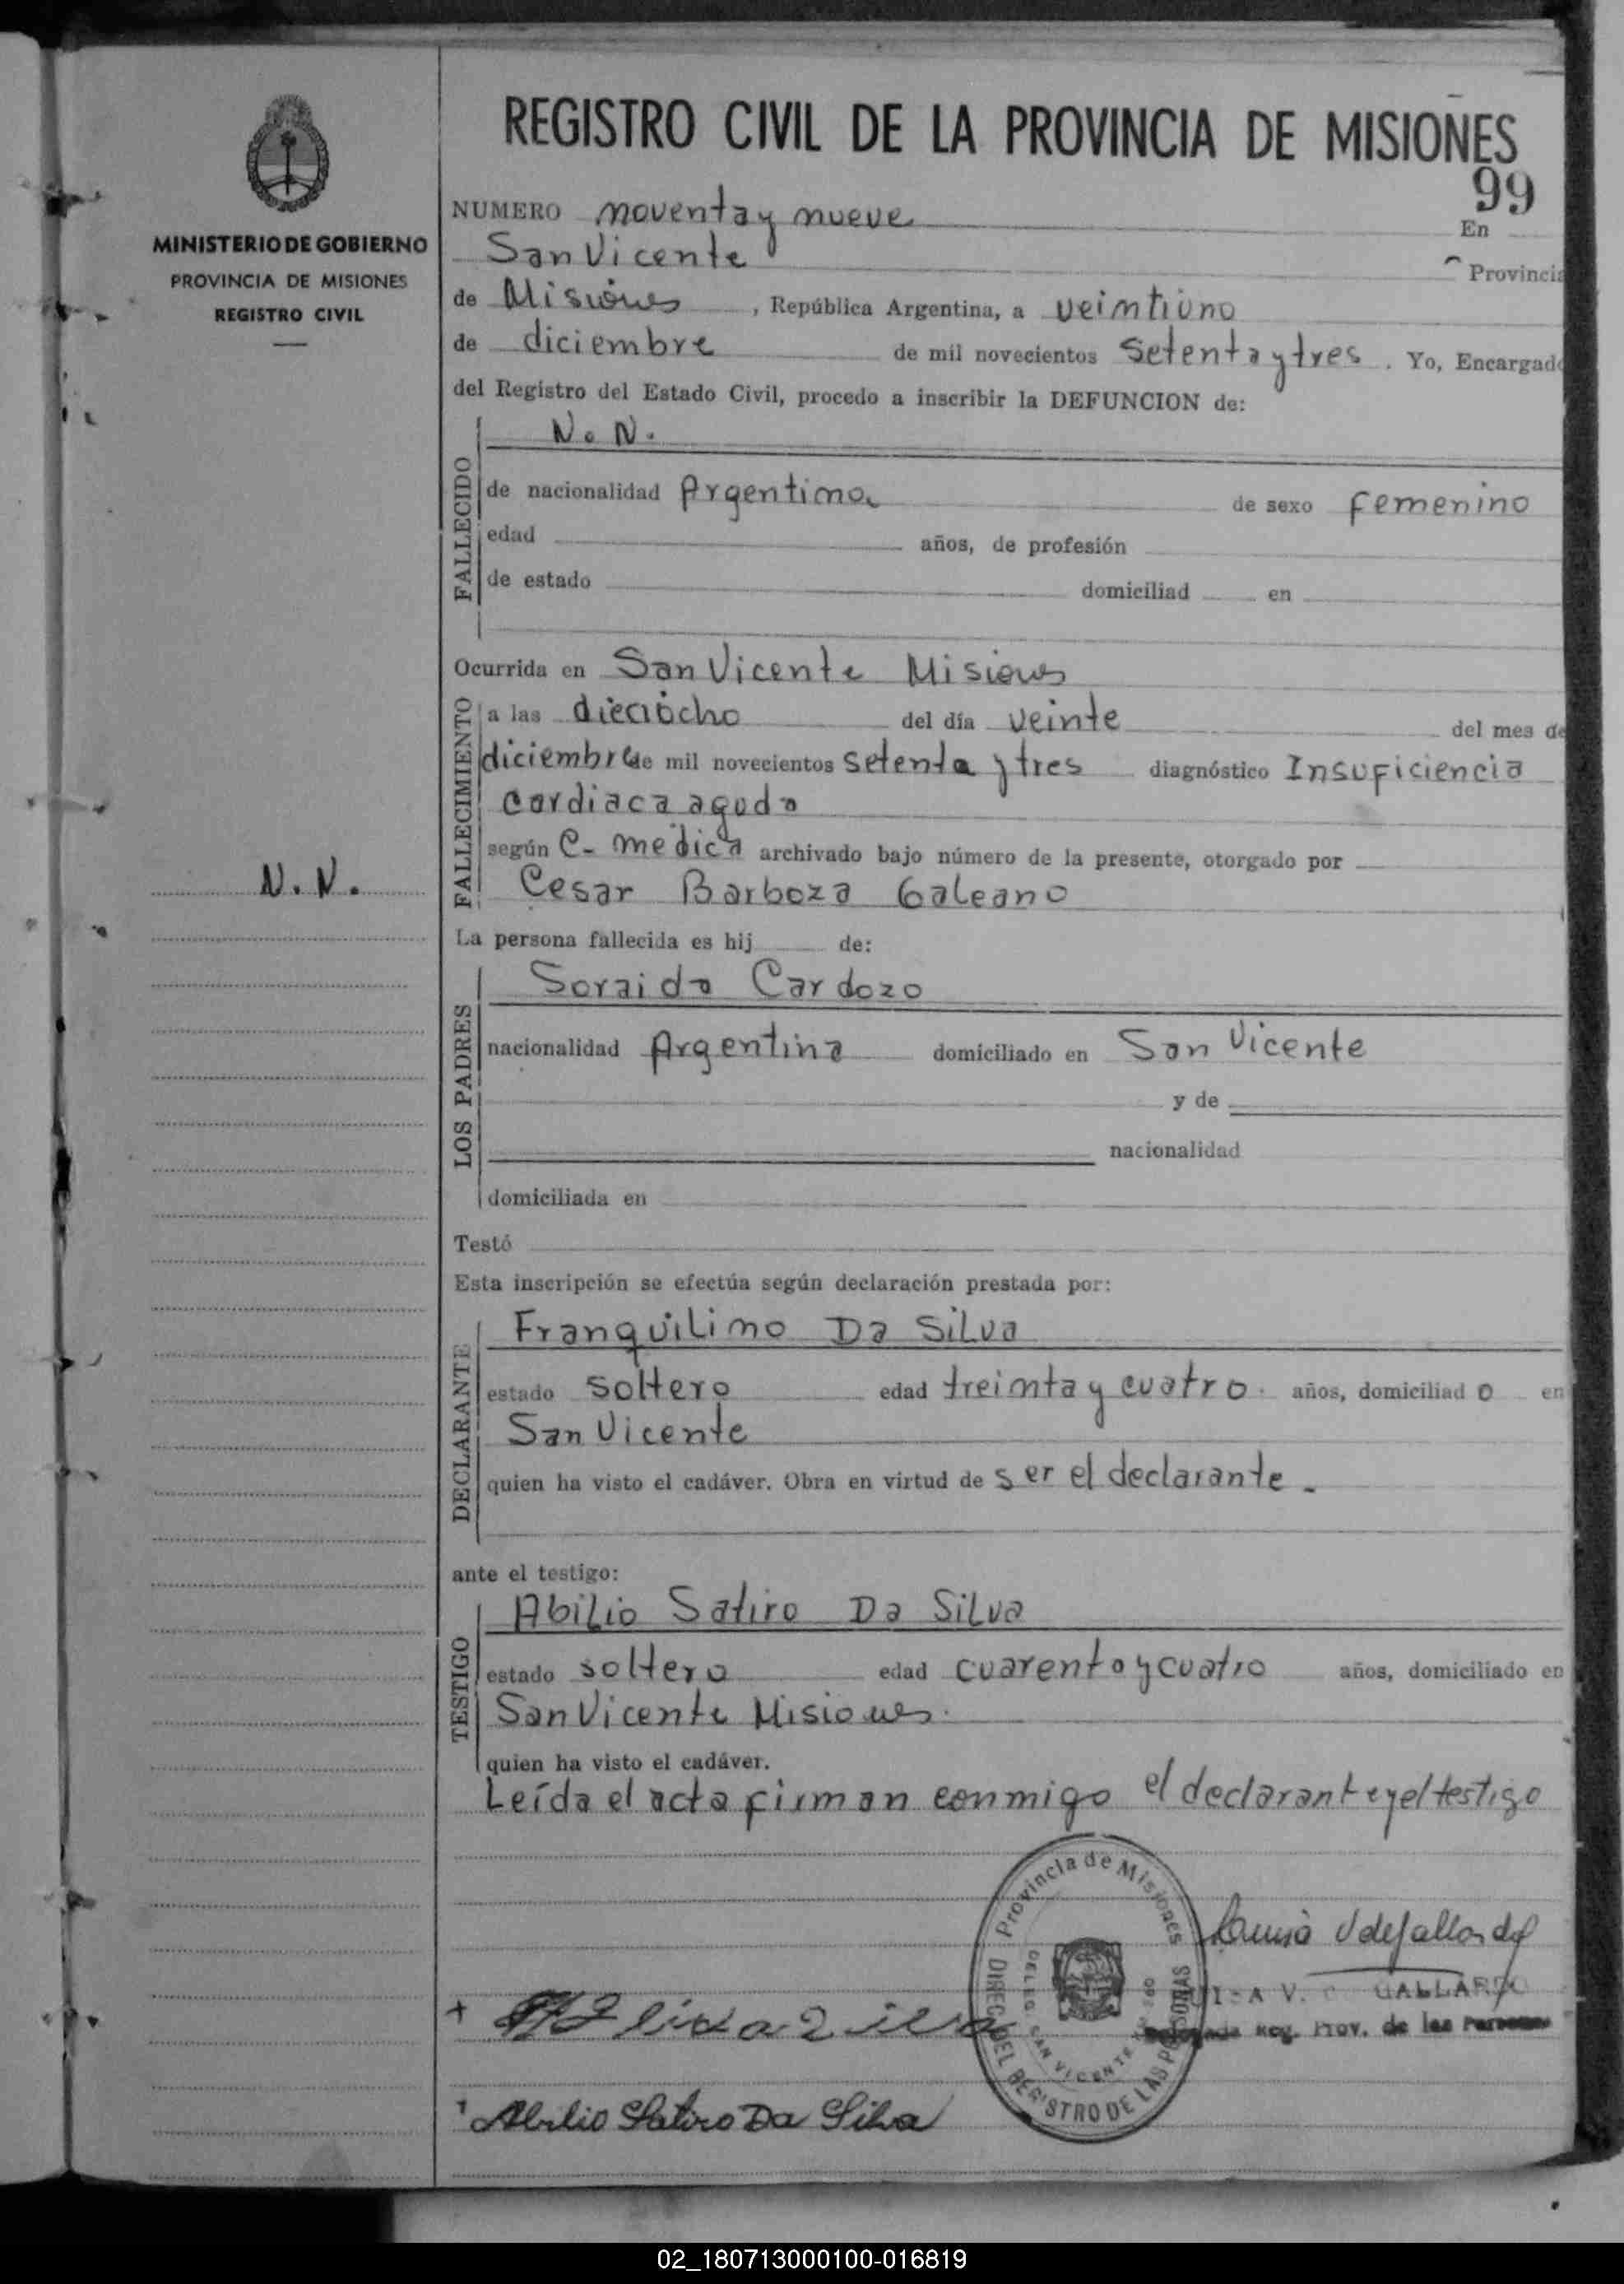 REGISTRO CIVIL DE LA PROVINCIA DE MISIONES
99
MINISTERIO DE GOBIERNO
PROVINCIA DE MISIONES
REGISTRO CIVIL
N. N.
NUMERO noventa y nueve En
San Vicente Provincia
de Misiones, República Argentina, a veintiuno
de diciembre de mil novecientos setenta y tres. Yo, Encargado
del Registro del Estado Civil, procedo a inscribir la DEFUNCION de:
FALLECIDO
N. N.
de nacionalidad Argentina de sexo femenino
edad años, de profesión
de estado domiciliad en
Ocurrida en San Vicente Misiones
FALLECIMIENTO
a las dieciocho del día veinte del mes de
diciembre de mil novecientos setenta y tres diagnóstico Insuficiencia
cardiaca aguda
según C. medica archivado bajo número de la presente, otorgado por
Cesar Barboza Galeano
La persona fallecida es hij de:
LOS PADRES
Soraida Cardozo
nacionalidad Argentina domiciliado en San Vicente
y de
nacionalidad
domiciliada en
Testó
Esta inscripción se efectúa según declaración prestada por:
DECLARANTE
Franquilino Da Silva
estado soltero edad treinta y cuatro años, domiciliado en
San Vicente
quien ha visto el cadáver. Obra en virtud de ser el declarante.
ante el testigo:
TESTIGO
Abilio Satiro Da Silva
estado soltero edad cuarenta y cuatro años, domiciliado en
San Vicente Misiones.
quien ha visto el cadáver.
Leída el acta firman conmigo el declarante y el testigo
Provincia de Misiones
DIREC. DEL REGISTRO DE LAS PERSONAS
DELEG. SAN VICENTE
V. GALLARDO
Delegada Reg. Prov. de las Personas
Abilio Satiro Da Silva
02_180713000100-016819